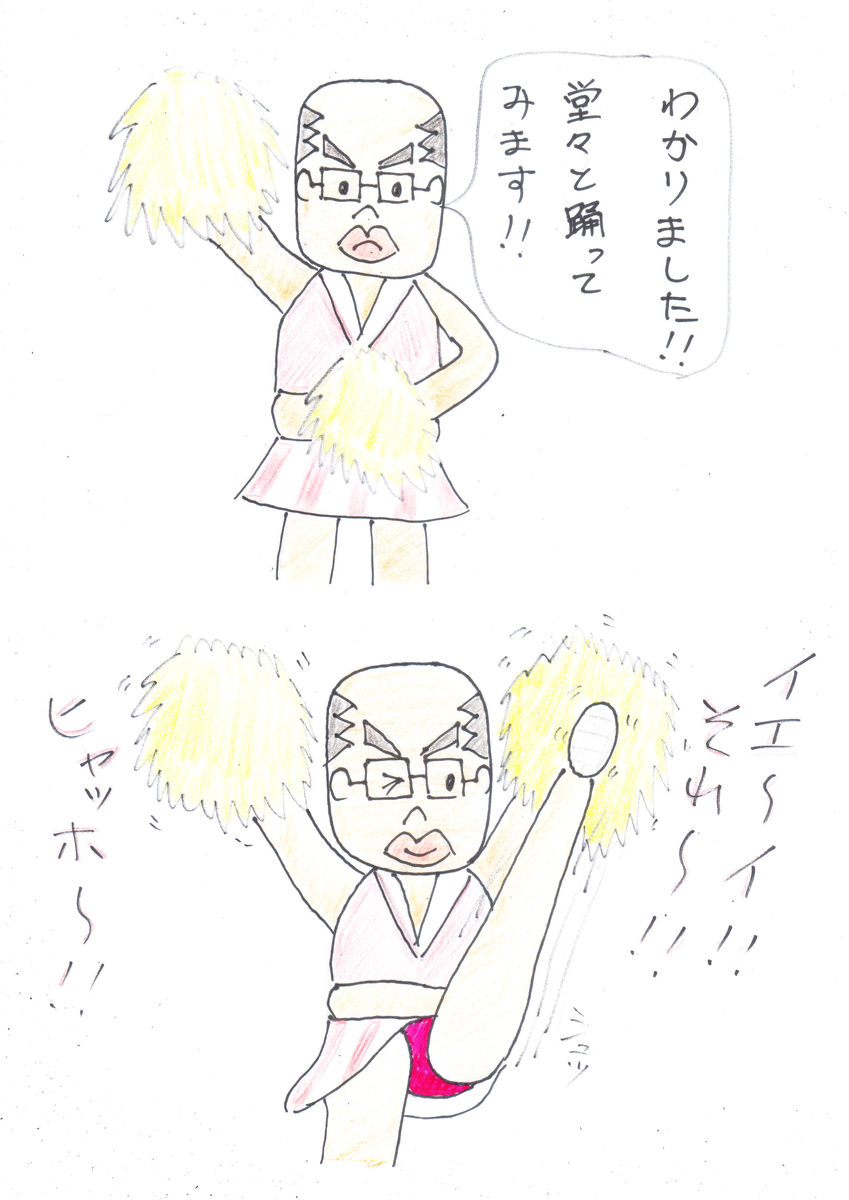 わかりました!!
堂々と踊って
みます!!
イエ～イ!!
それ～!!
ヒャッホ～!!
シュッ